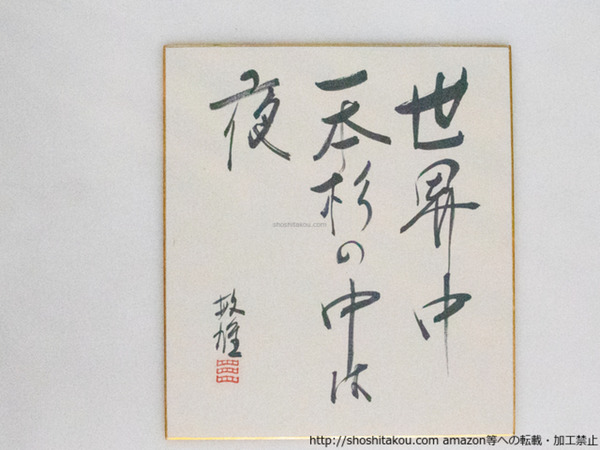 世界中
一本杉の中は
夜
敏雄
shoshitakou.com
http://shoshitakou.com amazon等への転載・加工禁止